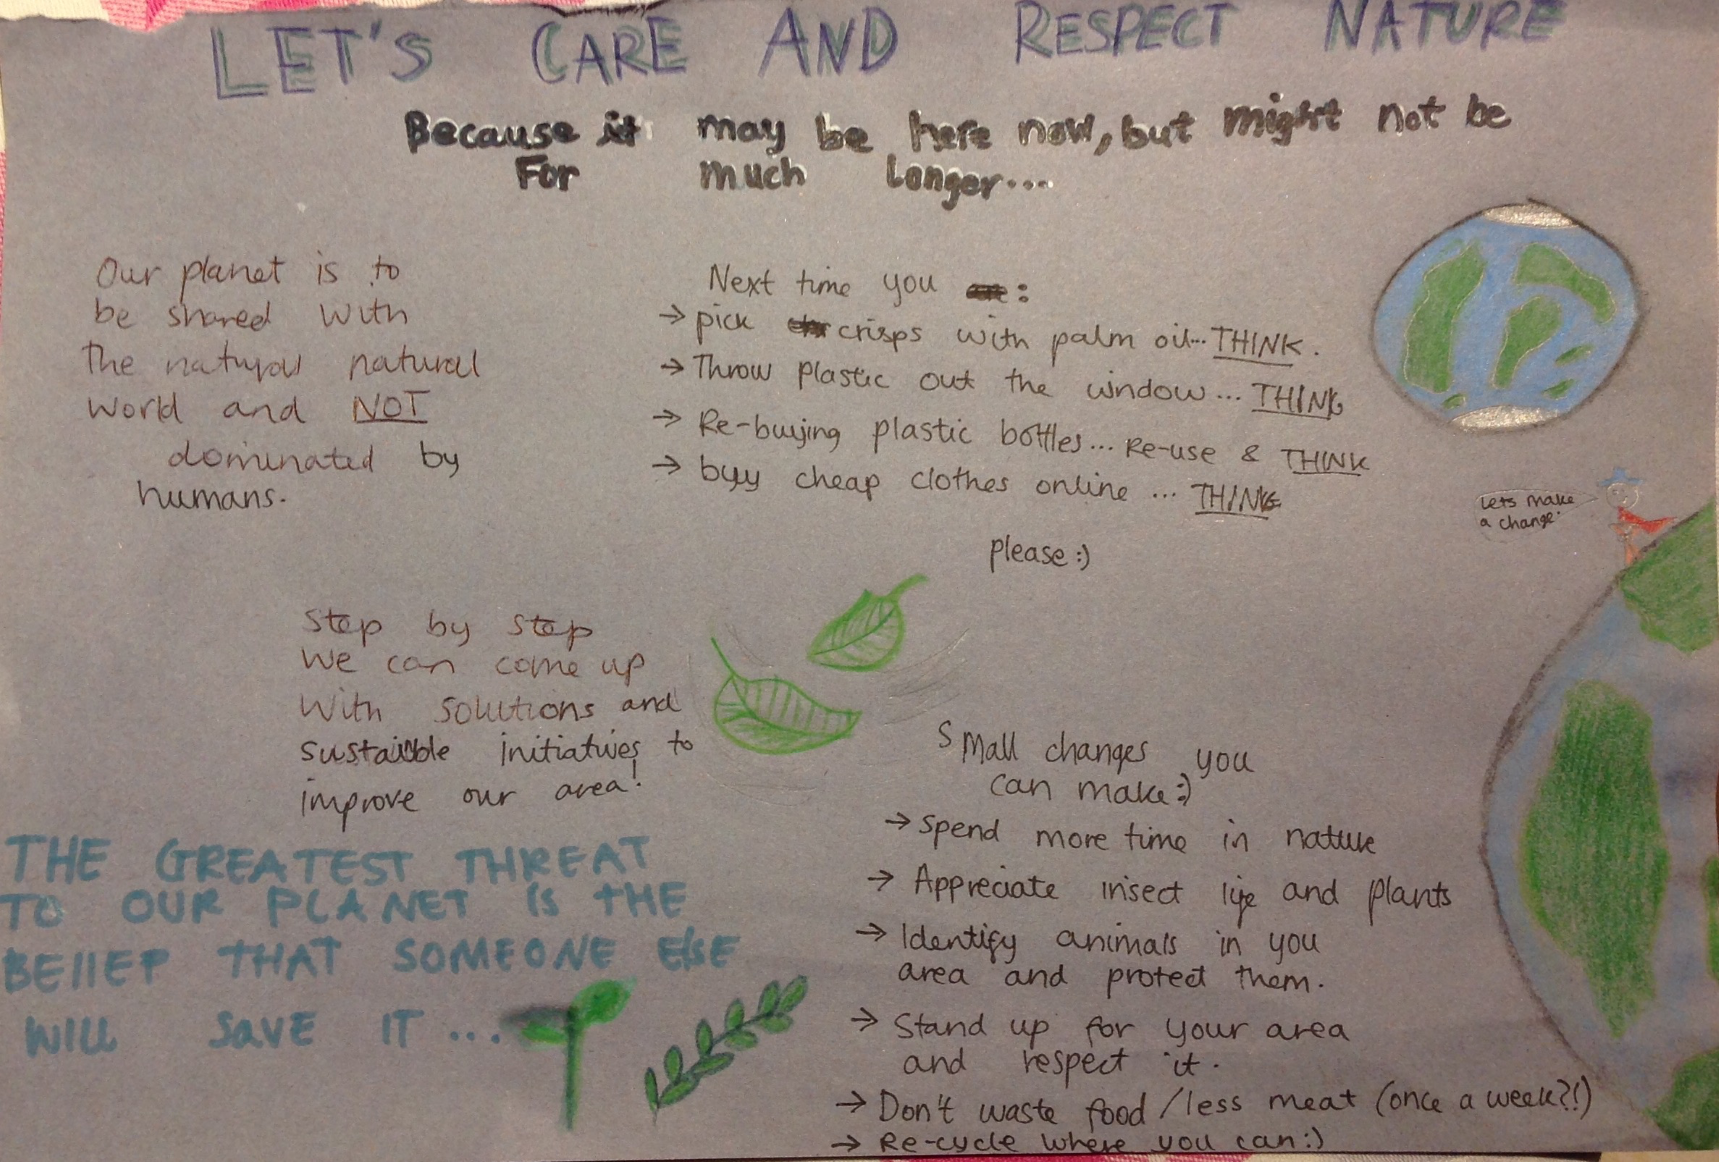 LET'S CARE AND RESPECT NATURE
Because it may be here now, but might not be
For much longer...
Our planet is to
be shared with
the natural natural
world and NOT
dominated by
humans.
Next time you :
→ pick crisps with palm oil... THINK.
→ Throw plastic out the window... THINK
→ Re-buying plastic bottles... Re-use & THINK
→ buy cheap clothes online ... THINK
please :)
Lets make
a change.
Step by step
we can come up
with solutions and
sustaible initiatives to
improve our area!
THE GREATEST THREAT
TO OUR PLANET IS THE
BELIEF THAT SOMEONE ELSE
WILL SAVE IT ...
Small changes you
can make :)
→ Spend more time in nature
→ Appreciate insect life and plants
→ Identify animals in you
area and protect them.
→ Stand up for your area
and respect it.
→ Don't waste food / less meat (once a week?!)
→ Re-cycle where you can :)